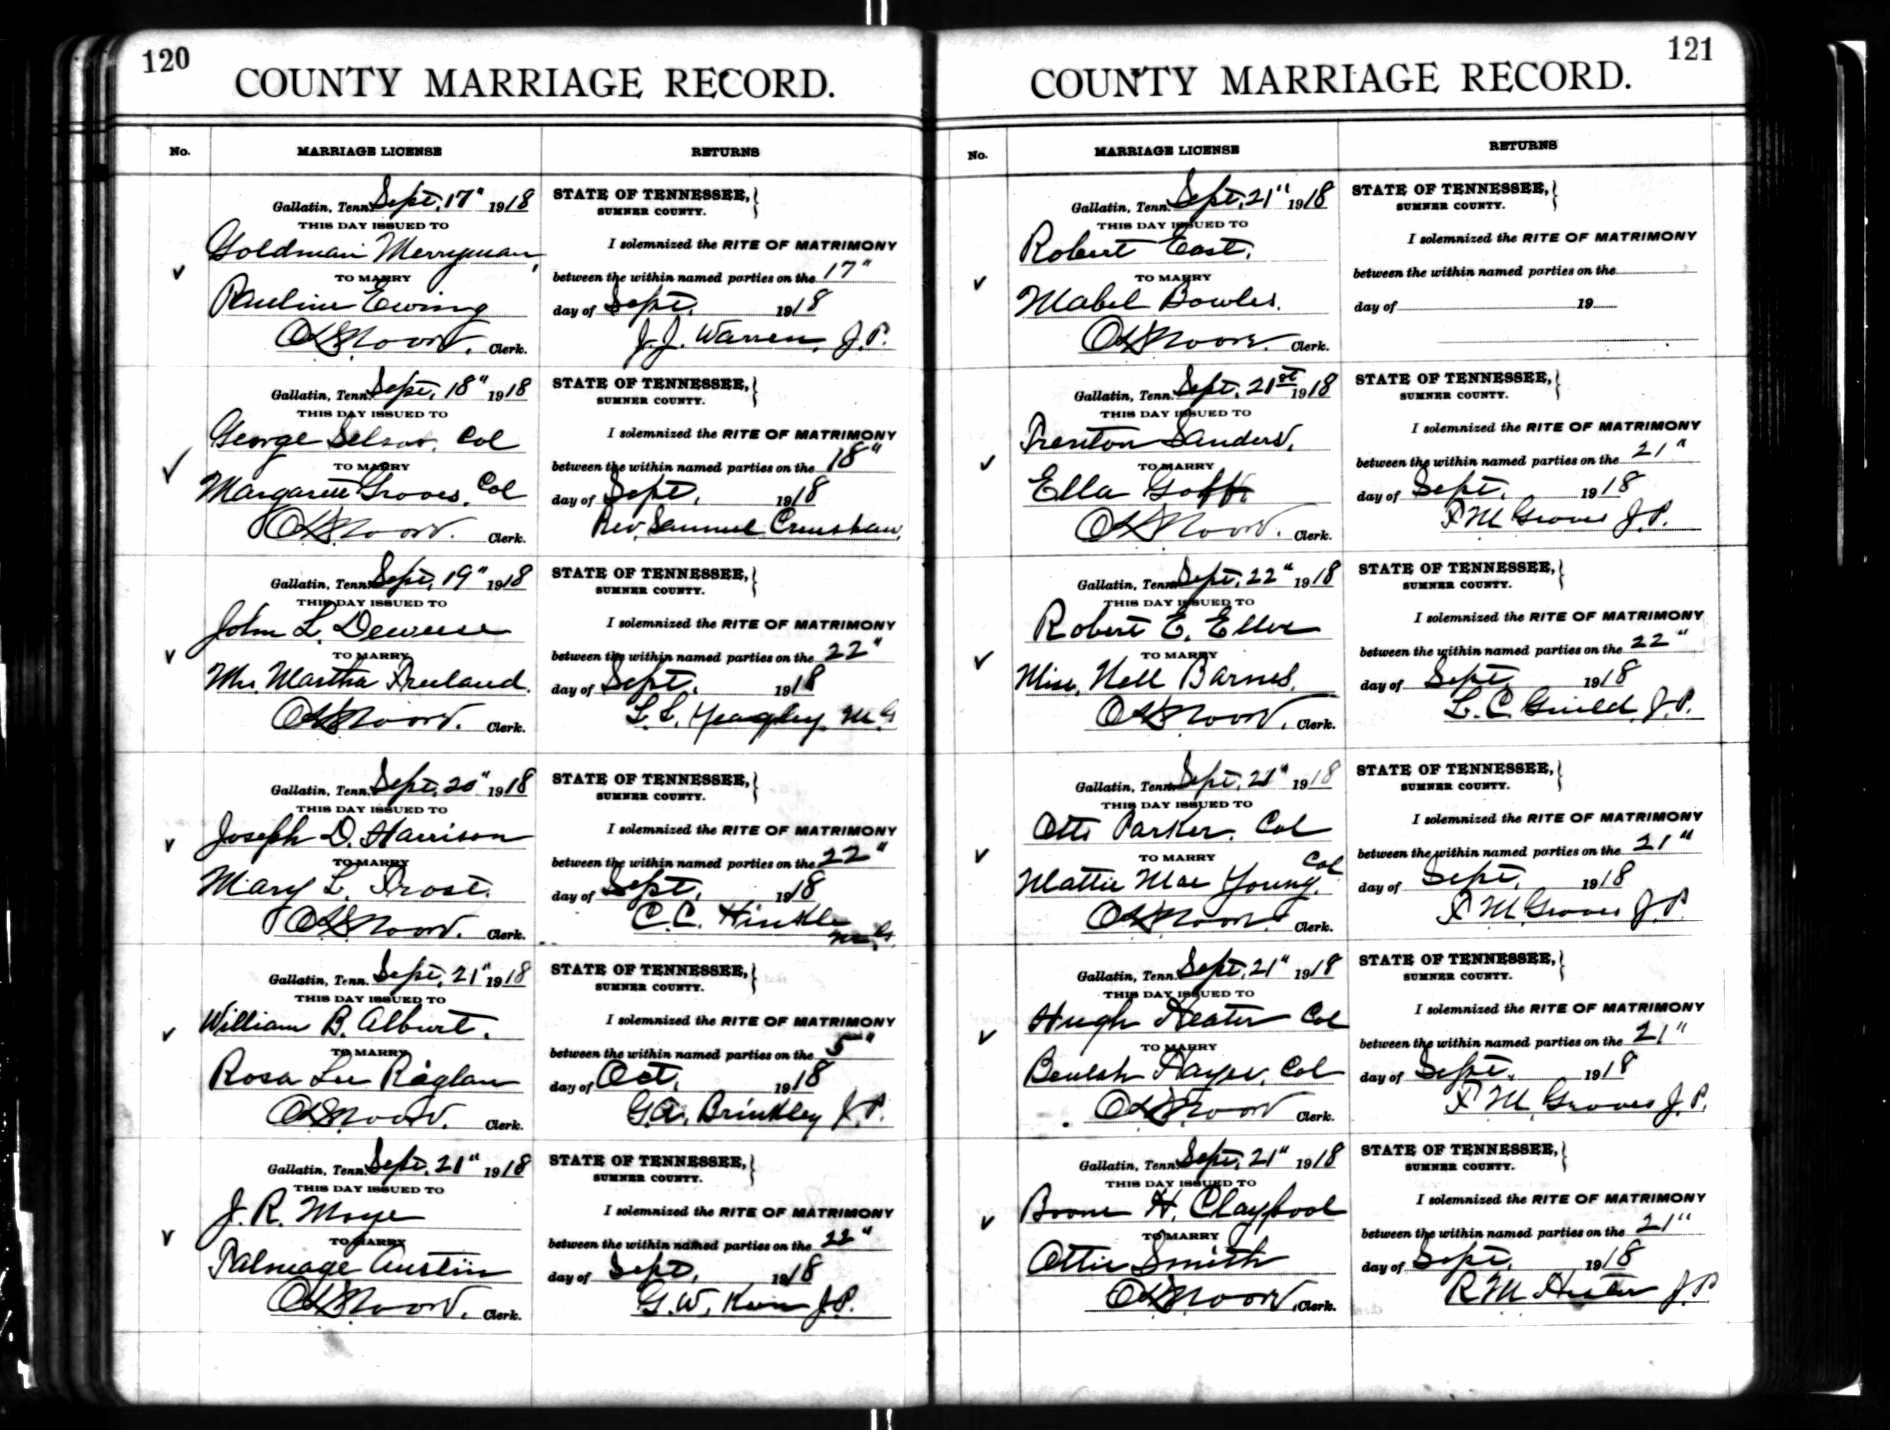 120
COUNTY MARRIAGE RECORD.
No.
MARRIAGE LICENSE
RETURNS
Gallatin, Tenn. Sept. 17" 1918
THIS DAY ISSUED TO
Goldman Merryman,
TO MARRY
Pauline Ewing
Clerk.
STATE OF TENNESSEE,
SUMNER COUNTY.
I solemnized the RITE OF MATRIMONY
between the within named parties on the 17"
day of Sept. 1918
J. J. Warren, J.P.
Gallatin, Tenn. Sept. 18" 1918
THIS DAY ISSUED TO
George Col
TO MARRY
Margarett Groves, Col
Clerk.
STATE OF TENNESSEE,
SUMNER COUNTY.
I solemnized the RITE OF MATRIMONY
between the within named parties on the 18"
day of Sept. 1918
Rev. Samuel Crenshaw,
Gallatin, Tenn. Sept. 19" 1918
THIS DAY ISSUED TO
John L. Deweese
TO MARRY
Mrs. Martha Freeland.
Clerk.
STATE OF TENNESSEE,
SUMNER COUNTY.
I solemnized the RITE OF MATRIMONY
between the within named parties on the 22"
day of Sept. 1918
L. L. Yeagley M.G
Gallatin, Tenn. Sept. 20" 1918
THIS DAY ISSUED TO
Joseph D. Harrison
TO MARRY
Mary L. Frost.
Clerk.
STATE OF TENNESSEE,
SUMNER COUNTY.
I solemnized the RITE OF MATRIMONY
between the within named parties on the 22"
day of Sept. 1918
C. C. Hinkle
M.G.
Gallatin, Tenn. Sept. 21" 1918
THIS DAY ISSUED TO
William B. Alburt.
TO MARRY
Rosa Lee Raglan
Clerk.
STATE OF TENNESSEE,
SUMNER COUNTY.
I solemnized the RITE OF MATRIMONY
between the within named parties on the 5"
day of Oct. 1918
G.A. Brinkley J.P.
Gallatin, Tenn. Sept. 21" 1918
THIS DAY ISSUED TO
J. R. Moye
TO MARRY
Talmage Austin
Clerk.
STATE OF TENNESSEE,
SUMNER COUNTY.
I solemnized the RITE OF MATRIMONY
between the within named parties on the 22"
day of Sept. 1918
G. W. J.P.
121
COUNTY MARRIAGE RECORD.
No.
MARRIAGE LICENSE
RETURNS
Gallatin, Tenn. Sept. 21" 1918
THIS DAY ISSUED TO
Robert East.
TO MARRY
Mabel Bowles.
Clerk.
STATE OF TENNESSEE,
SUMNER COUNTY.
I solemnized the RITE OF MATRIMONY
between the within named parties on the
day of 19
Gallatin, Tenn. Sept. 21st 1918
THIS DAY ISSUED TO
Trenton Sanders,
TO MARRY
Ella Goff.
Clerk.
STATE OF TENNESSEE,
SUMNER COUNTY.
I solemnized the RITE OF MATRIMONY
between the within named parties on the 21"
day of Sept. 1918
F M Groves J.P.
Gallatin, Tenn. Sept. 22" 1918
THIS DAY ISSUED TO
Robert E. Ellis
TO MARRY
Miss. Nell Barnes.
Clerk.
STATE OF TENNESSEE,
SUMNER COUNTY.
I solemnized the RITE OF MATRIMONY
between the within named parties on the 22"
day of Sept. 1918
L. C. Guild, J.P.
Gallatin, Tenn. Sept. 21" 1918
THIS DAY ISSUED TO
Otts Parker. Col
TO MARRY
Mattie Mae Young. Col
Clerk.
STATE OF TENNESSEE,
SUMNER COUNTY.
I solemnized the RITE OF MATRIMONY
between the within named parties on the 21"
day of Sept. 1918
F M Groves J.P.
Gallatin, Tenn. Sept. 21" 1918
THIS DAY ISSUED TO
Hugh Keater Col
TO MARRY
Beulah Hayse, Col
Clerk.
STATE OF TENNESSEE,
SUMNER COUNTY.
I solemnized the RITE OF MATRIMONY
between the within named parties on the 21"
day of Sept. 1918
F M. Groves J.P.
Gallatin, Tenn. Sept. 21" 1918
THIS DAY ISSUED TO
Boone H. Claypool
TO MARRY
Ottie Smith
Clerk.
STATE OF TENNESSEE,
SUMNER COUNTY.
I solemnized the RITE OF MATRIMONY
between the within named parties on the 21"
day of Sept. 1918
R M Hester J.P